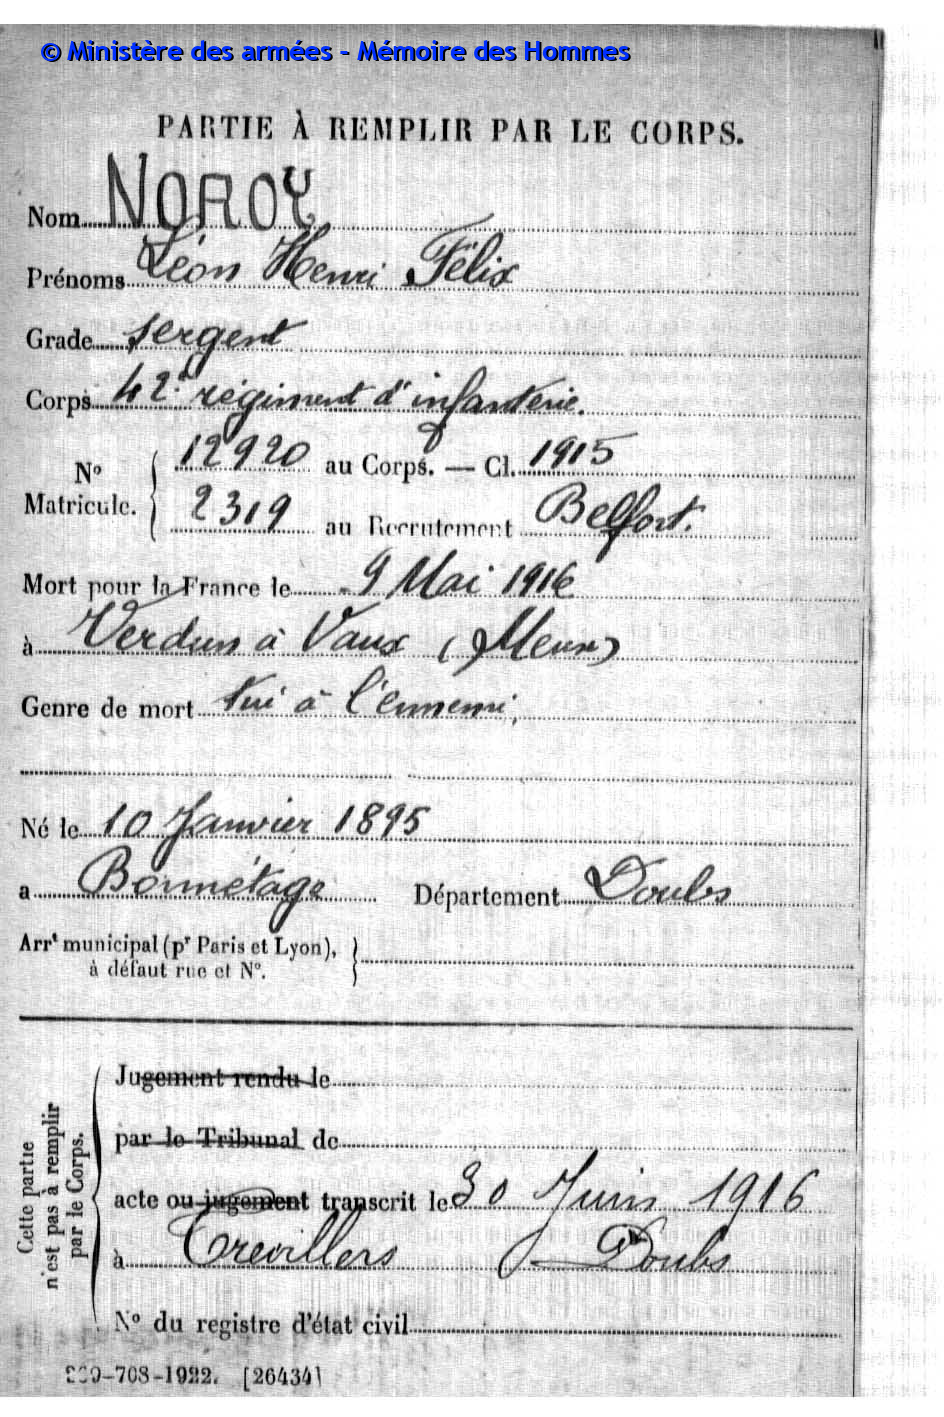 © Ministère des armées - Mémoire des Hommes
PARTIE À REMPLIR PAR LE CORPS.
Nom NOROY
Prénoms Léon Henri Félix
Grade sergent
Corps 42e régiment d'infanterie.
No Matricule. 12920 au Corps. — Cl. 1915
2319 au Recrutement Belfort.
Mort pour la France le 9 Mai 1916
à Verdun à Vaux (Meuse)
Genre de mort Tué à l'ennemi.
Né le 10 Janvier 1895
a Bonnétage Département Doubs
Arrt municipal (pr Paris et Lyon),
à défaut rue et No.
Cette partie n'est pas à remplir par le Corps.
Jugement rendu le
par le Tribunal de
acte ou jugement transcrit le 30 Juin 1916
à Trevillers Doubs
No du registre d'état civil
-708-1922. [26434]